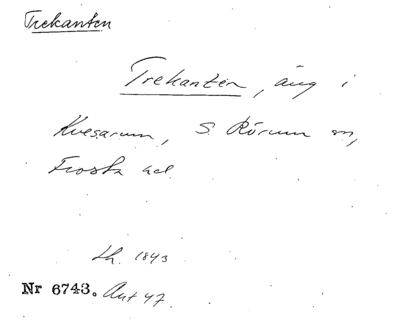 Trekanten
Trekanten, äng i
Kvesarum, S. Rörum sn,
Frosta hd.
Lh. 1843
Nr 6743. Ant 47.